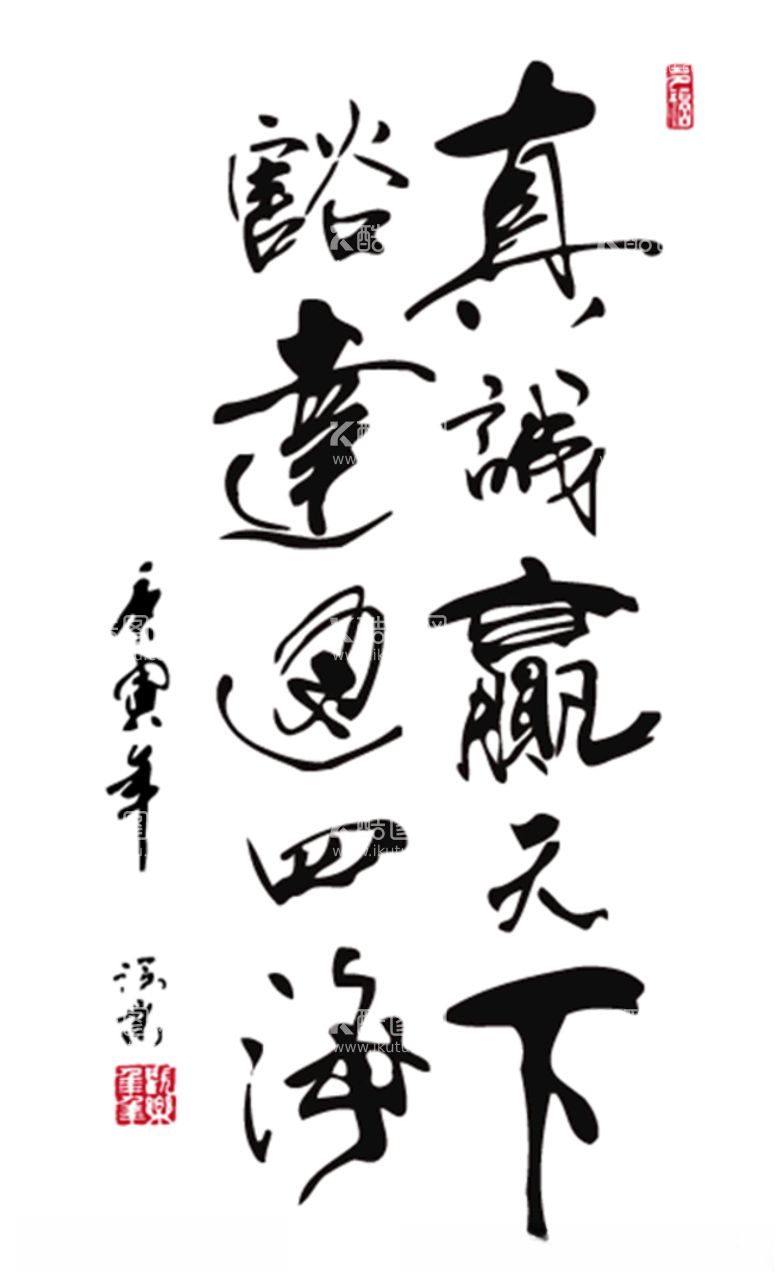 真誠贏天下
豁達通四海
庚寅年